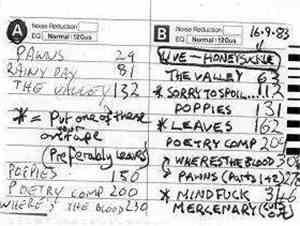 A Noise Reduction
EQ Normal: 120us
PAWNS 29
RAINY DAY 81
THE VALLEY 132
* = Put one of these
on tape
(Preferably Leaves)
POPPIES 150
POETRY COMP 200
WHERE'S THE BLOOD 230
B Noise Reduction
EQ Normal: 120us
16.9.83
LIVE - HONEYSUCKLE
THE VALLEY 63
* SORRY TO SPOIL... 112
POPPIES 131
* LEAVES 162
POETRY COMP 20
WHERES THE BLOOD 30
PAWNS (Parts 1+2) 27
* MINDFUCK 346
MERCENARY